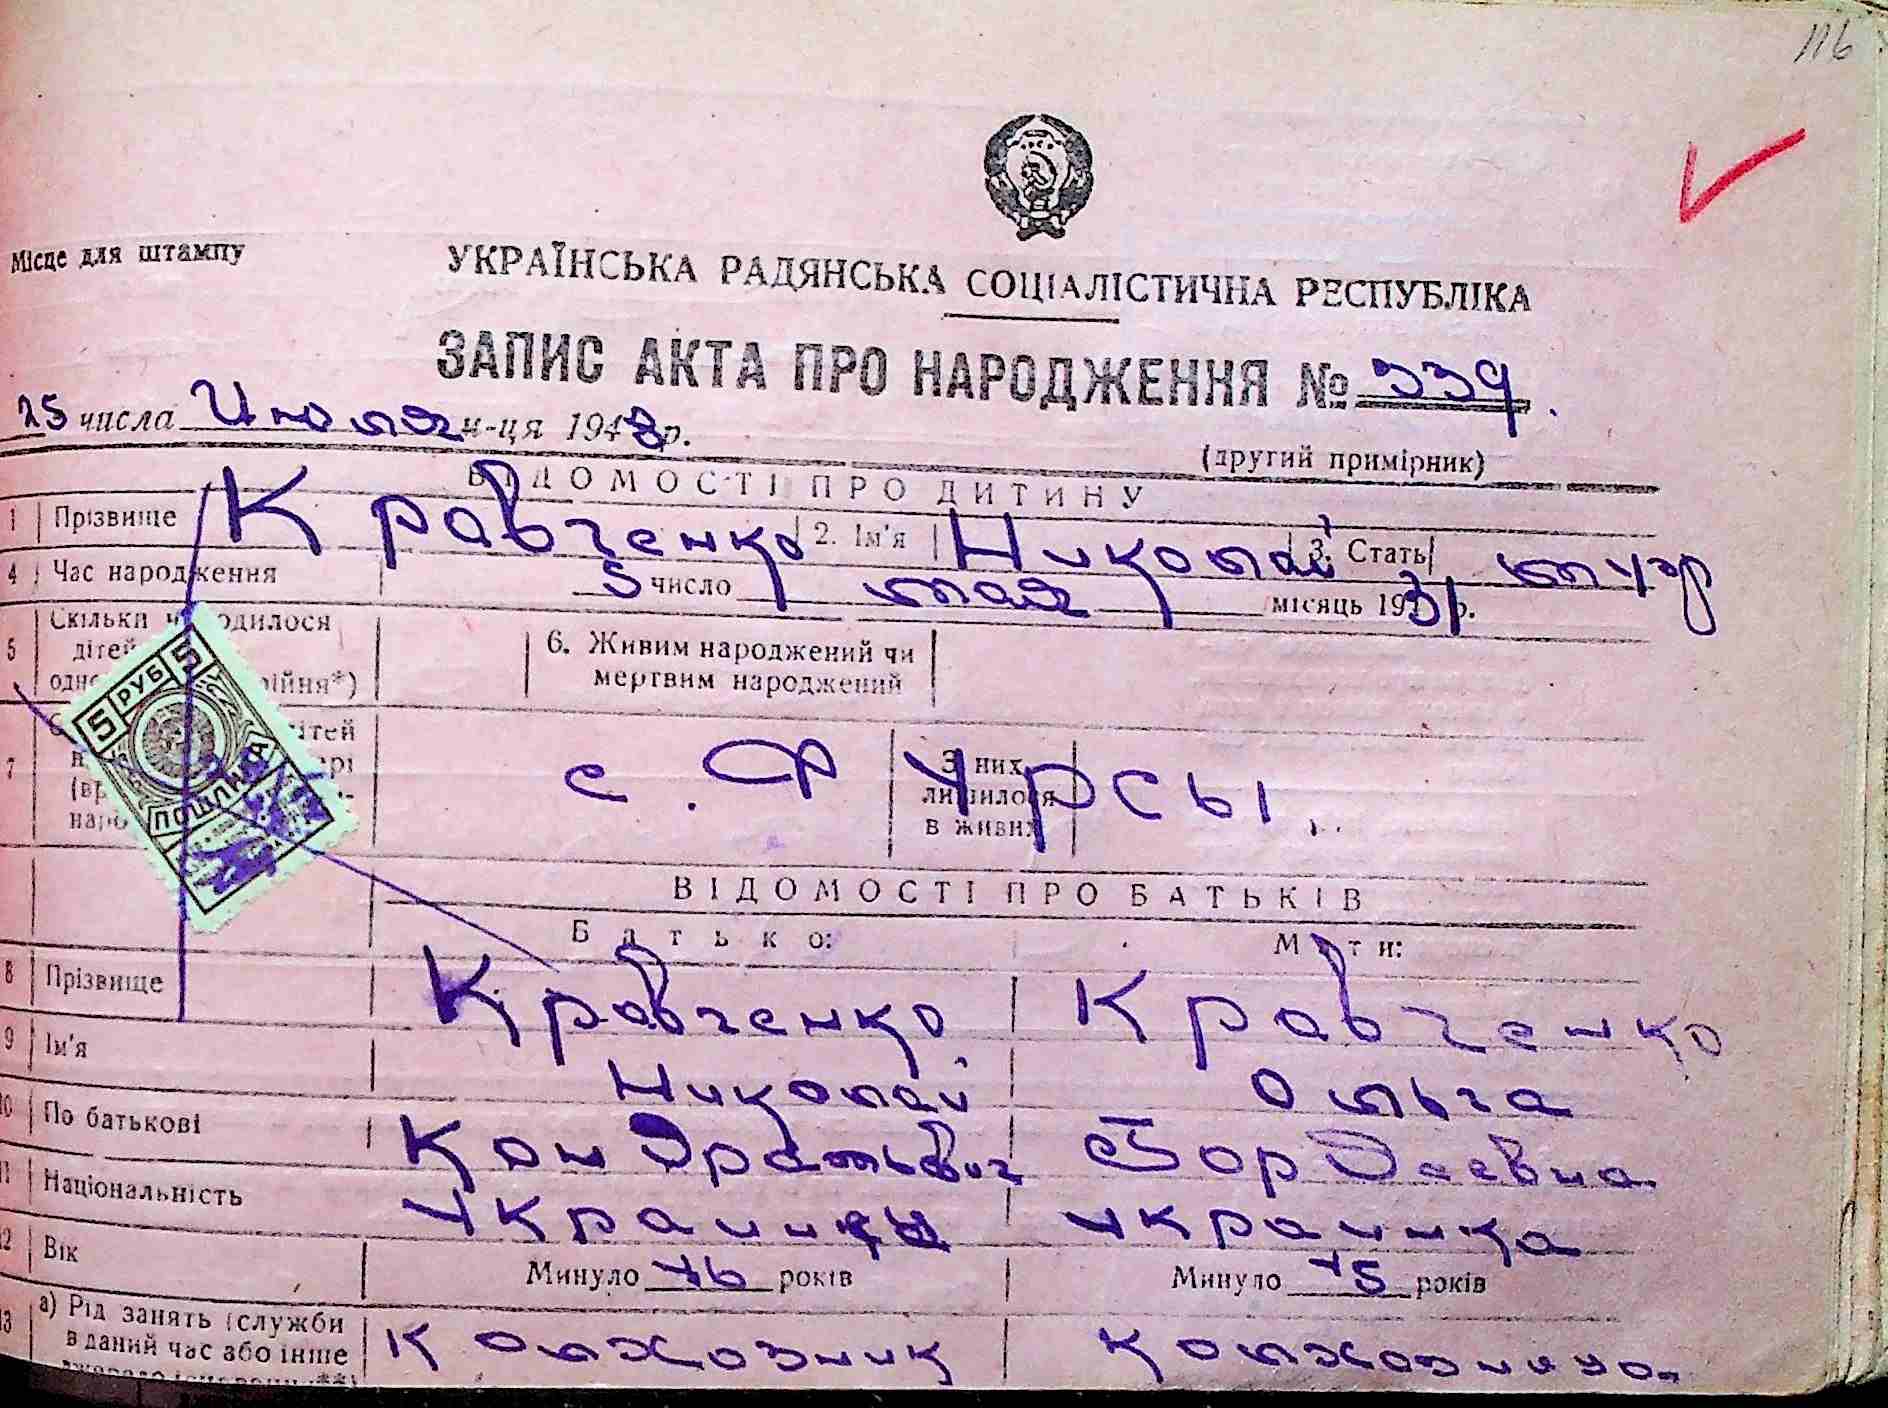 116
Місце для штампу
УКРАЇНСЬКА РАДЯНСЬКА СОЦІАЛІСТИЧНА РЕСПУБЛІКА
ЗАПИС АКТА ПРО НАРОДЖЕННЯ № 339.
25 числа Июля м-ця 1948 р.
(другий примірник)
ВІДОМОСТІ ПРО ДИТИНУ
1 Прізвище Кравченко 2. Ім'я Николай 3. Стать муж
4 Час народження 5 число мая місяць 1931 р.
5 Скільки дітей
6. Живим народжений чи мертвим народжений
7 с. Фурсы
З них лишилося в живих
5 РУБ 5
ПОШЛИНА
ВІДОМОСТІ ПРО БАТЬКІВ
Батько: Мати:
8 Прізвище Кравченко Кравченко
9 Ім'я Николай Ольга
10 По батькові Кондратьевич Гордеевна
11 Національність украинец украинка
12 Вік Минуло 46 років Минуло 45 років
13 а) Рід занять (служби Колхозник Колхозница
в даний час або інше